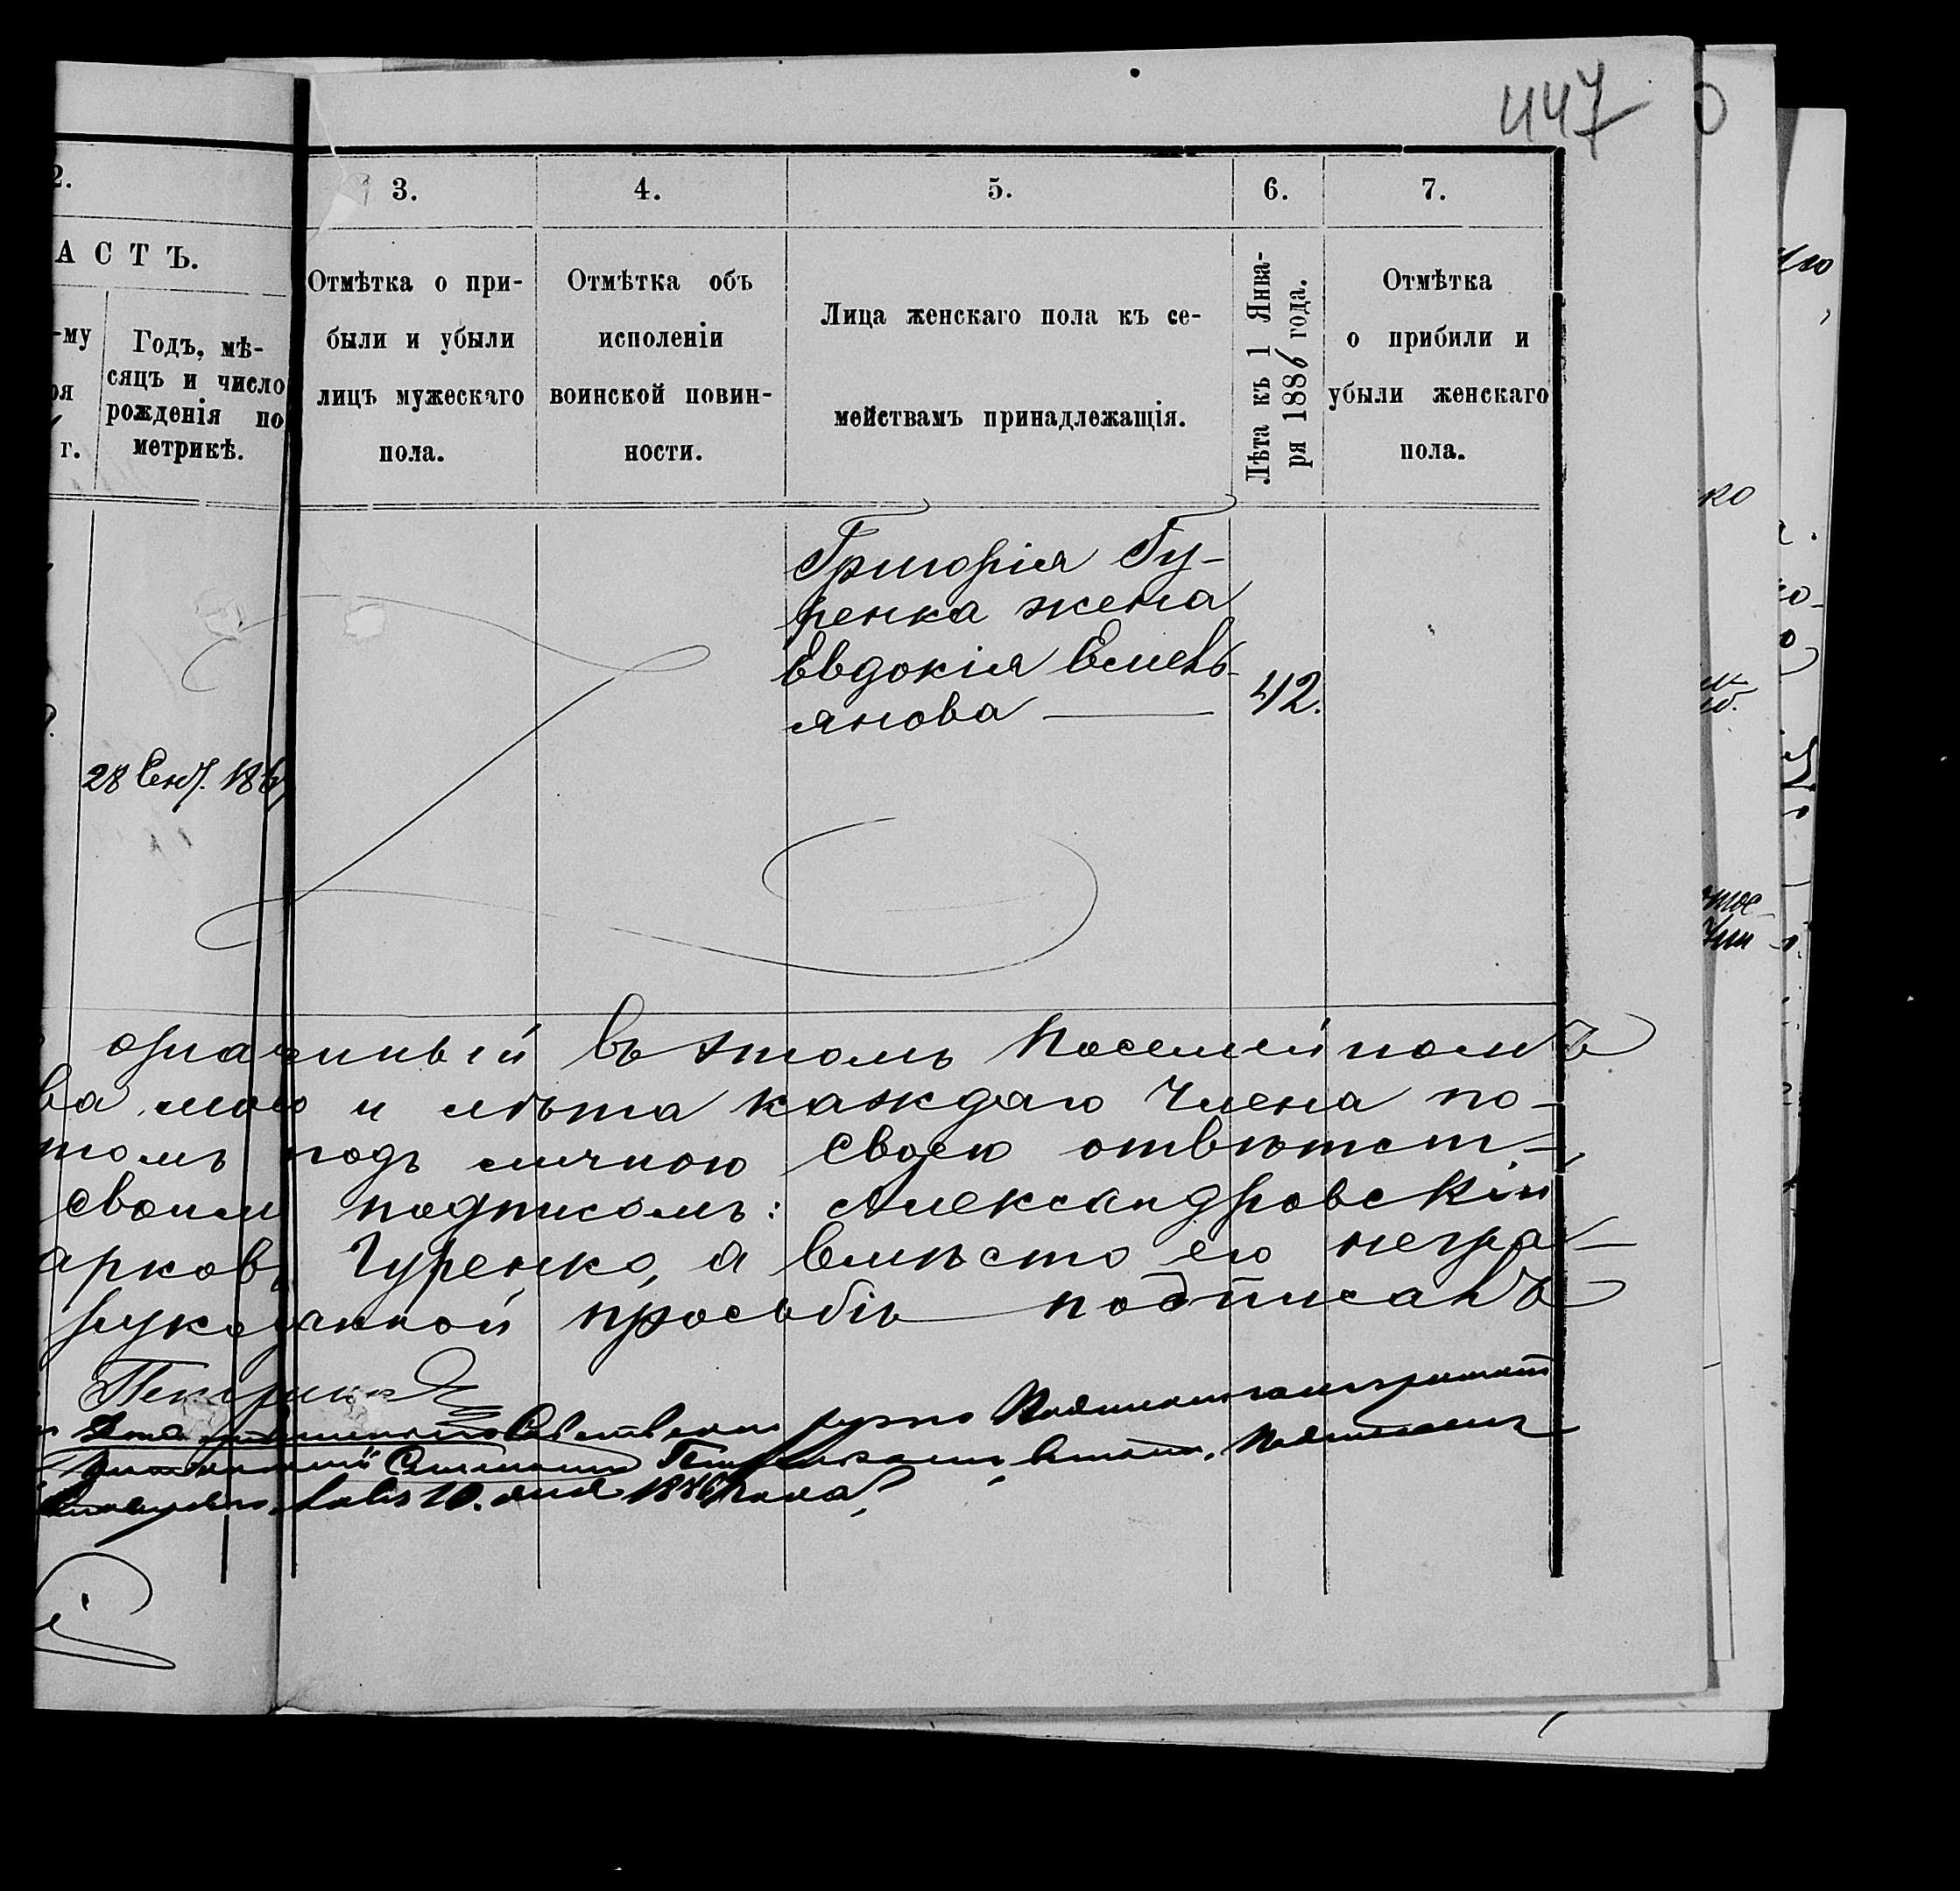 447
2.
3.
4.
5.
6.
7.
АСТЪ.
-му
г.
Годъ, мѣ-
сяцъ и число
рожденія по
метрикѣ.
Отмѣтка о при-
были и убыли
лицъ мужескаго
пола.
Отмѣтка объ
исполеніи
воинской повин-
ности.
Лица женскаго пола къ се-
мействамъ принадлежащія.
Лѣта къ 1 Янва-
ря 1886 года.
Отмѣтка
о прибили и
убыли женскаго
пола.
Григорія Гу-
ренка жена
Евдокія Емель-
янова 42.
28 Сент. 186
означиный въ этомъ Посемейномъ
ва мою и лѣта каждаго Члена по-
томъ подъ личною своею отвѣтст-
своим подписомъ: Александровскій
арковъ Гуренко, а вмѣсто его негра-
рукоданной просьбѣ подписалъ
Петренко
собственно ручно
10. дня 1886 года